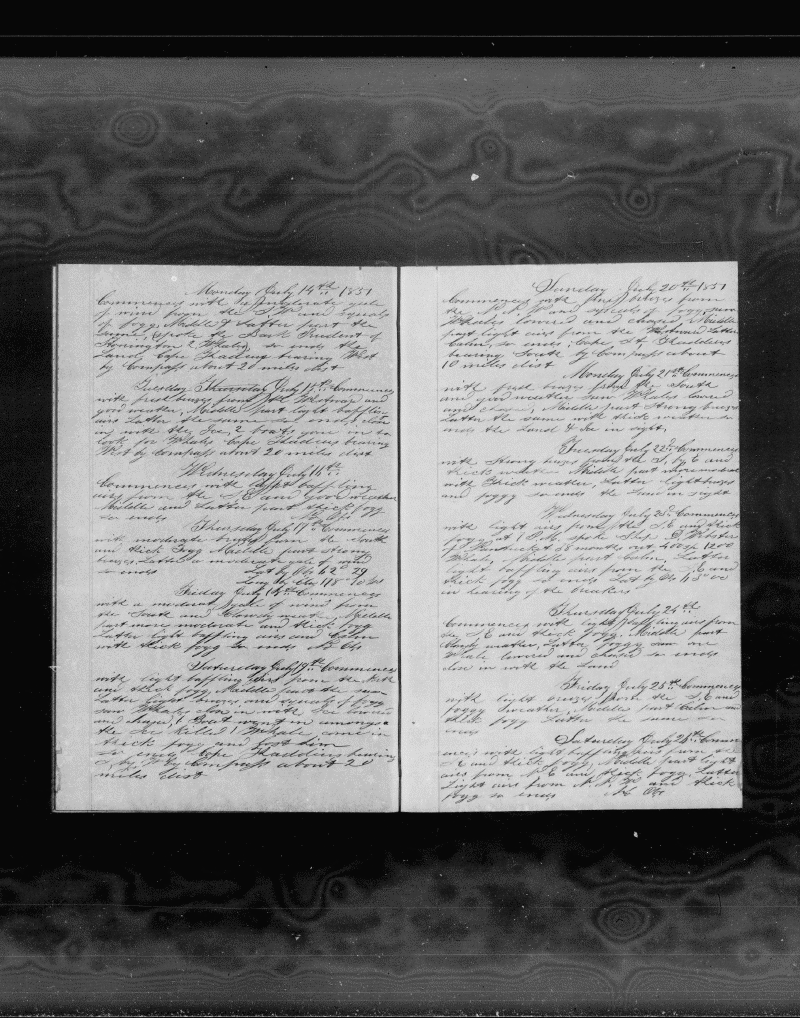 Monday July 14th 1851
Commences with a moderate gale
of wind from the S.W. and squals
of fogg, Middle & Latter part the
same, spoke Bark Prudent of
Stonington 2 Whales, so ends the
Land, Cape Thadeus bearing West
by Compass about 20 miles dist
Tuesday July 15th Commences
with fresh breezes from the Westward and
good weather, Middle part light baffling
airs Latter the same so ends, close
in with the Ice, 2 boats gone in to
look for Whales Cape Thadeus bearing
West by Compass about 20 miles dist
Wednesday July 16th
Commences with light baffling
airs from the S.E and good weather
Middle and Latter part thick fogg
so ends No Obs
Thursday July 17th Commences
with moderate breezes from the South
and thick Fogg Middle part strong
breezes, Latter a moderate gale of wind
so ends Lat by Obs 62° 29
Long by Chr
Friday July 18th Commences
with a moderate gale of wind from
the South and Cloudy weather, Middle
part more moderate and thick fogg
Latter light baffling airs and Calm
with thick fogg So ends No Obs
Saturday July 19th Commences
with light baffling airs from the North
and thick fogg, Middle part the same
Latter light breezes and squals of fogg
saw Whales close in with Ice lowered
and chased, 1 Boat went in amongst
the Ice Killed 1 Whale came in
thick fogg and lost him
so ends Cape Thaddeus bearing
S, by W by Compass about 20
miles dist
Sunday July 20th 1851
Commences with fresh breezes from
the N.W and squals of fogg, saw
Whales lowered and chased, Middle
part light airs from the Westward Latter
Calm, so ends, Cape St. Thaddeus
bearing South by Compass about
10 miles dist
Monday July 21st Commences
with fresh breezes from the South
and good weather saw Whales lowered
and chased, Middle part Strong breezes
Latter the same with thick weather so
ends the Land & Ice in sight,
Tuesday July 22d Commences
with strong breezes from the S, by E and
thick weather Middle part more moderate
with thick weather, Latter light breezes
and foggy so ends the Land in sight
Wednesday July 23d Commences
with light airs from the S.E and thick
fogg, at 1 P.M. spoke Ship D Webster
of Nantucket 68 months out, 400 sp 1200
Whale, Middle part Calm, Latter
light baffling airs from the S.E and
thick fogg so ends Lat by Obs
in hearing of the breakers
Thursday July 24th
Commences with light baffling airs from
the S.E and thick fogg. Middle part
Cloudy weather, Latter foggy saw one
Whale lowered and chased so ends
close in with the Land
Friday July 25th Commences
with light breezes from the S.E and
foggy weather, Middle part Calm and
thick fogg Latter the same so
ends
Saturday July 26th Comm
ences with light baffling airs from the
S.E and thick fogg, Middle part light
airs from N.E and thick fogg, Latter
Light airs from N.N.W and thick
fogg so ends No Obs